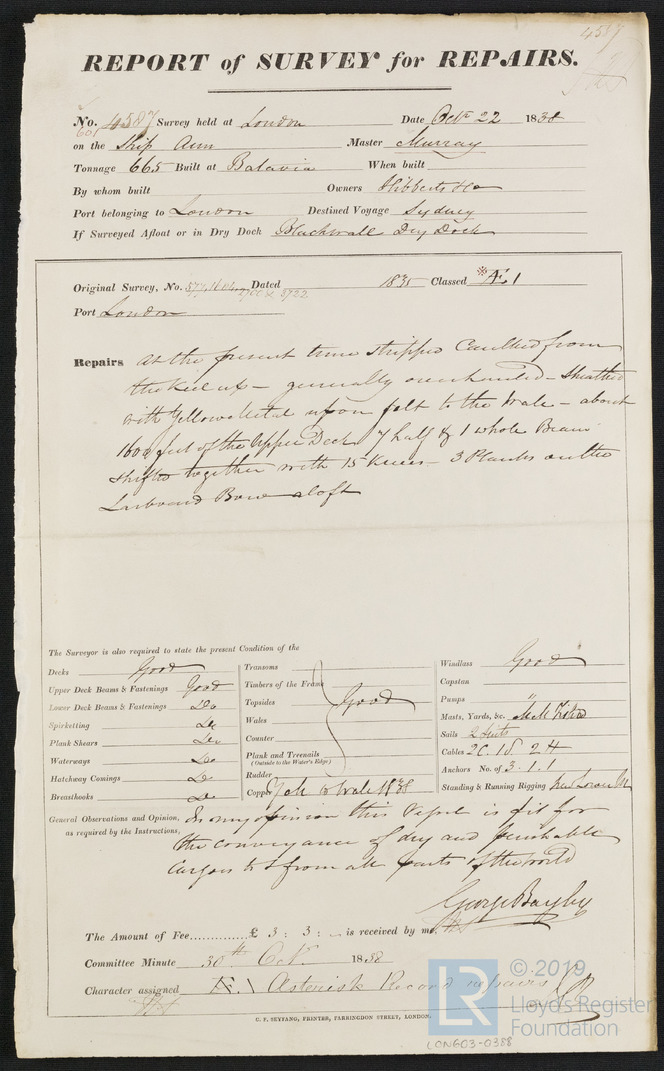 4587
REPORT of SURVEY for REPAIRS.
No. 4587 Survey held at London Date Octr 22 1838
on the Ship Ann Master Murray
Tonnage 665 Built at Batavia When built
By whom built Owners Hibberts & Co
Port belonging to London Destined Voyage Sydney
If Surveyed Afloat or in Dry Dock Blackwall Dry Dock
Original Survey, No. Dated 1835 Classed *Æ 1
Port London
Repairs at the present time stripped Caulked from
the Keel up – generally overhauled – Sheathed
with Yellow Metal upon felt to the Wale – about
1600 feet of the Upper Deck 7 half & 1 whole Beam
shifted together with 15 Knees – 3 Planks on the
Larboard Bow aloft
The Surveyor is also required to state the present Condition of the
Decks Good
Upper Deck Beams & Fastenings Good
Lower Deck Beams & Fastenings Do
Spirketting Do
Plank Shears Do
Waterways Do
Hatchway Comings Do
Breasthooks Do
Transoms
Timbers of the Frame
Topsides Good
Wales
Counter
Plank and Treenails
(Outside to the Water's Edge)
Rudder
Copper to Wale 1838
Windlass Good
Capstan
Pumps "
Masts, Yards, &c.
Sails 2 Suits
Cables 2 C. 1 S. 2 H
Anchors No. of 3. 1. 1
Standing & Running Rigging
General Observations and Opinion, In my opinion this Vessel is fit for
as required by the Instructions, the conveyance of dry and perishable
Cargoes to & from all parts of the World
George Bayley
The Amount of Fee..............£ 3 : 3 : – is received by me,
Committee Minute 30th Octr 1838
Character assigned Æ. 1 Asterisk Record repairs
C. F. SEYFANG, PRINTER, FARRINGDON STREET, LONDON.
LR
© 2019
Lloyd's Register
Foundation
LON603-0388